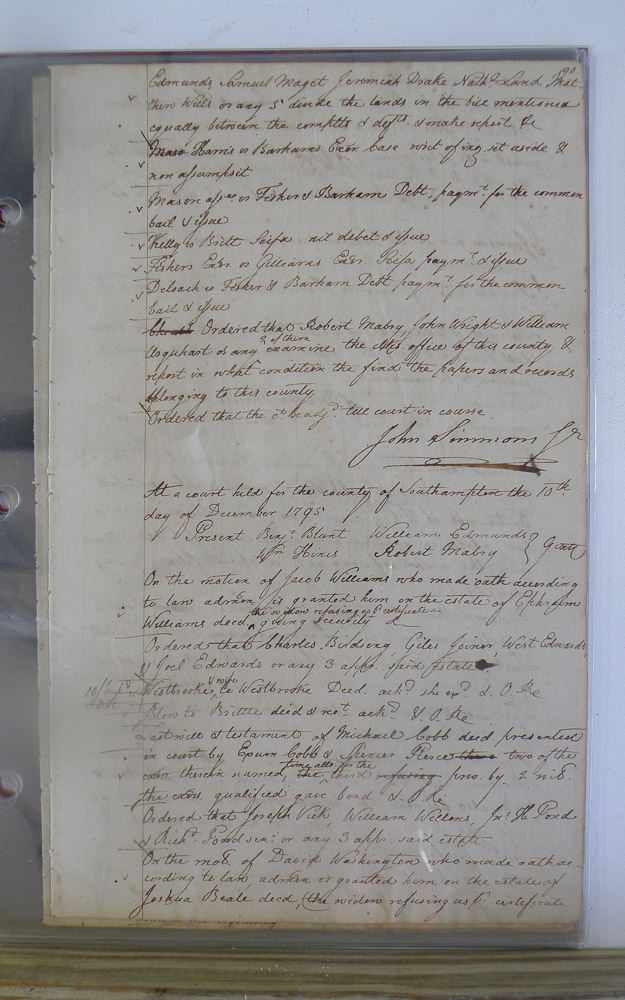 Edmunds, Samuel Maget Jeremiah Drake Nath.l Land, that
them Wills or any 5 divide the lands in the bill mentioned
equally between the complts & defts & make report &c
Maso Harris vs Barhams Exr Case writ of inq. set aside &
non assumpsit
Mason assee vs Fisher & Barham Debt, paymt. for the common
bail & issue
Kelly vs Britt Scifa nil debet & issue
Fishers Exer vs Gilliams Exer. Scifa paymt. & issue
Deloach vs Fisher & Barham Debt paymt for the common
bail & issue
Ordered that Robert Mabry, John Wright & William
Urquhart or any 2 of them examine the office of this county &
report in what condition the find the papers and records
belonging to this county
Ordered that the ct be adjd. till court in course
John Simmons Jr
At a court held for the county of Southampton the 10th
day of December 1795
Present Benj.a Blunt William Edmunds
Wm Hines Robert Mabry } Gentn
On the motion of Jacob Williams who made oath according
to law admcn is granted him on the estate of Ephraim
the widow refusing as p certificate
Williams decd giving security &
Ordered that Charles Birdsong, Giles Joiner, West Edwards
& Joel Edwards or any 3 appr. said estate
& wife
Westbrooke to Westbrooke Deed ackd she exd. & O Re
Blow to Brittle deed & rect ackd & O Re
Last will & testament of Michael Cobb decd presented
in court by Exum Cobb & Spencer Pierce three two of the
time alld for the
exors therein named, the third refusing pro. by 2 wits
the exors qualified gave bond & O Re
Ordered that Joseph Vick, William Wellons, Jno. H. Pond
& Richd Pond senr or any 3 appr. said estate
On the mo. of David Washington who made oath ac-
cording to law admcn is granted him on the estate of
Joshua Beale decd, (the widow refusing as p certificate